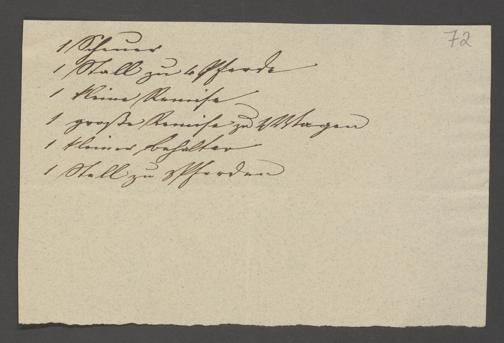 72
1 Scheuer
1 Stall zu 4 Pferde
1 kleine Remise
1 große Remise zu 2 Wagen
1 kleiner Behälter
1 Stall zu Pferden